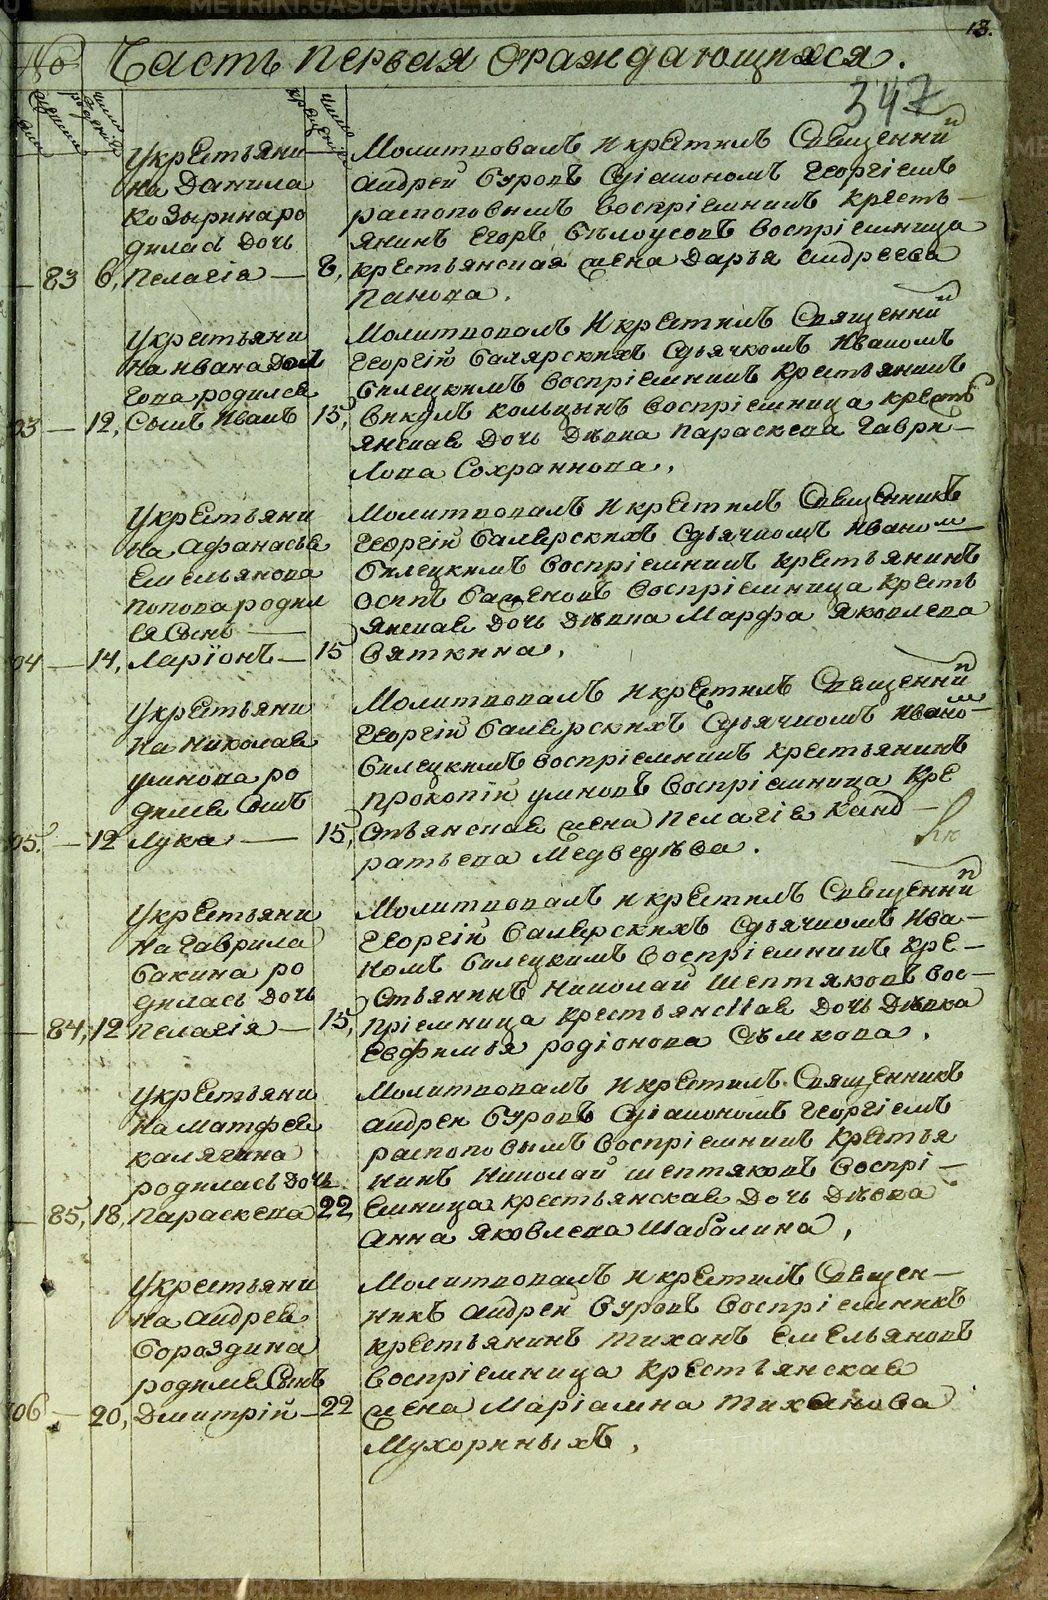 13.
No Часть первая ораждающихся.
347
число рожденія
число крещенія
Укрестьяни
на Данила
Козырина ро
дилась Дочь
83 6, Пелагія — 8,
Молитвовалъ и крестилъ Священни
андрей Буровъ Сдіакономъ Георгіемъ
распоповымъ воспріемникъ кресть-
янинъ Егоръ Бѣлоусовъ воспріемница
крестьянская жена Дарья андреева
Панова.
Укрестьяни
на ивана
това родился
03 — 12, Сынъ Иванъ 15,
Молитвовалъ И крестилъ Священни
Георгій балярскихъ Сдьячкомъ Иваномъ
Билецкимъ воспріемникъ крестьянинъ
викулъ кольцынъ воспріемница кресть
янская Дочь Дѣвка параскева Гаври-
лова Сохраннова.
Укрестьяни
на Афанасья
Емельянова
попова родил
ся Сынъ —
04 — 14, Ларіонъ — 15
Молитвовалъ И крестилъ Священникъ
Георгій балярскихъ Сдьячкомъ Ивано м
Билецкимъ воспріемникъ крестьянинъ
осипъ баженовъ воспріемница кресть
янская Дочь Дѣвка Марфа Яковлева
Вяткина.
Укрестьяни
на николая
умнова ро
дился Сынъ
05. — 12 Лука — 15,
Молитвовалъ и крестилъ Священни
Георгій балярскихъ Сдьячкомъ Ивано м
Билецкимъ воспріемникъ крестьянинъ
прокопій умновъ воспріемница кре
стьянская жена пелагія Канд-
ратьева Медведѣва.
Укрестьяни
на Гаврила
бакина ро
дилась Дочь
84, 12 Пелагія — 15,
Молитвовалъ и крестилъ Священни
Георгій балярскихъ Сдьячкомъ Ива-
номъ билецкимъ воспріемникъ кре-
стьянинъ Николай шептяковъ вос-
пріемница крестьянская Дочь Дѣвка
Евфимья родіонова Сѣмкова.
Укрестьяни
на матфея
калягина
родилась Дочь
85, 18, параскева 22
Молитвовалъ И крестилъ Священникъ
андрей Буровъ Сдіакономъ Георгіемъ
распоповымъ воспріемникъ крестья
нинъ Николай шептяковъ воспрі-
емница крестьянская Дочь Дѣвка
анна яковлева шабалина.
Укрестьяни
на андрея
бороздина
родился Сынъ
06 — 20, Дмитрій — 22
Молитвовалъ и крестилъ Священ-
никъ андрей Буровъ воспріемникъ
крестьянинъ тиханъ емельяновъ
воспріемница крестьянская
жена Маріамна тиханова
Мухориныхъ.